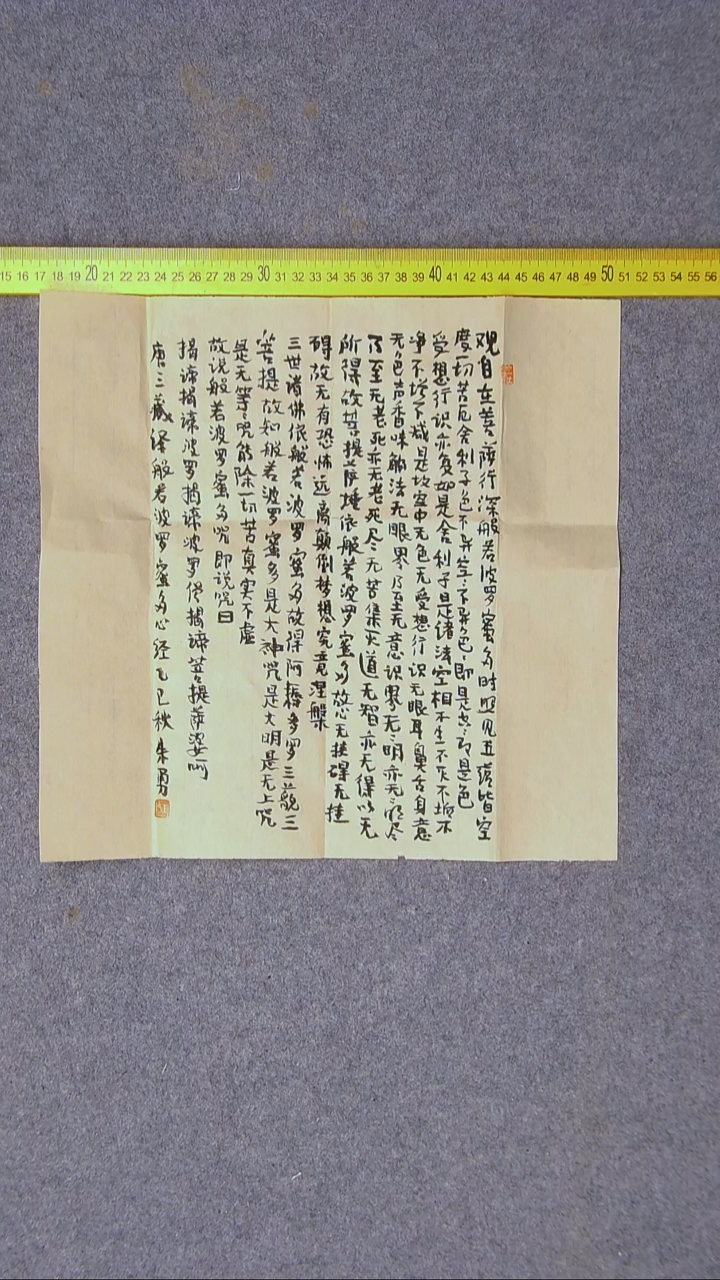 15 16 17 18 19 20 21 22 23 24 25 26 27 28 29 30 31 32 33 34 35 36 37 38 39 40 41 42 43 44 45 46 47 48 49 50 51 52 53 54 55 56
观自在菩萨行深般若波罗蜜多时照见五蕴皆空
度一切苦厄舍利子色不异空空不异色色即是空空即是色
受想行识亦复如是舍利子是诸法空相不生不灭不垢不
净不增不减是故空中无色无受想行识无眼耳鼻舌身意
无色声香味触法无眼界乃至无意识界无无明亦无无明尽
乃至无老死亦无老死尽无苦集灭道无智亦无得以无
所得故菩提萨埵依般若波罗蜜多故心无挂碍无挂
碍故无有恐怖远离颠倒梦想究竟涅槃
三世诸佛依般若波罗蜜多故得阿耨多罗三藐三
菩提故知般若波罗蜜多是大神咒是大明是无上咒
是无等等咒能除一切苦真实不虚
故说般若波罗蜜多咒即说咒曰
揭谛揭谛波罗揭谛波罗僧揭谛菩提萨婆呵
唐三藏译般若波罗蜜多心经乙巳秋朱勇